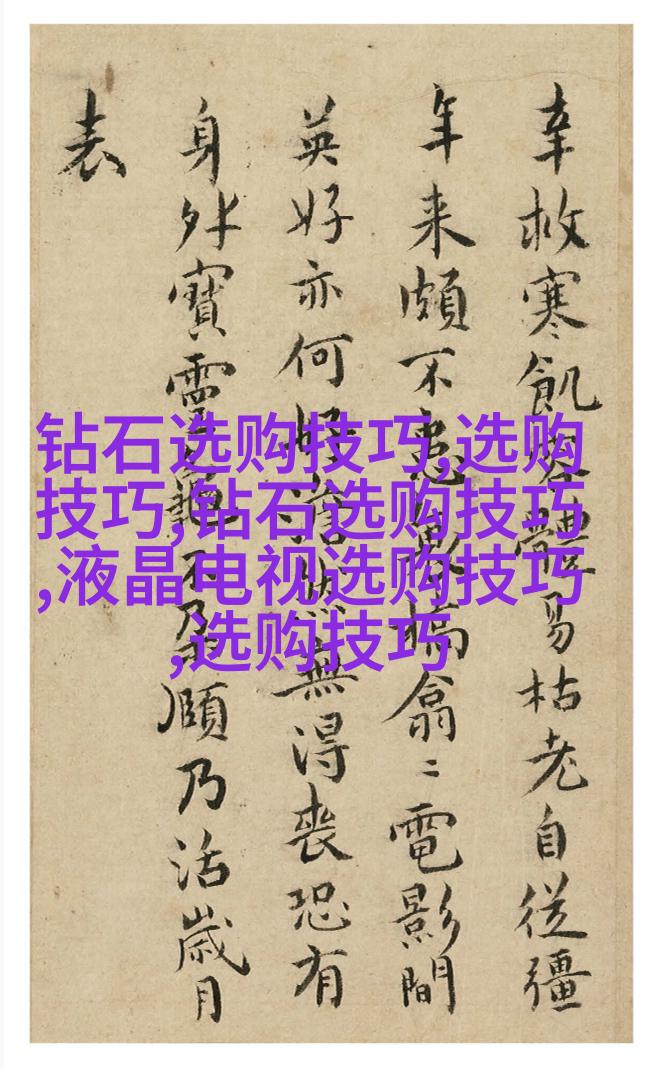 幸救寒飢體易枯老自從彊
年来頗不槁翕〻電影間
英好亦何無得喪恐有
身外寶靈龜不頤乃活歲月
表
钻石选购技巧,选购
技巧,钻石选购技巧
,液晶电视选购技巧
,选购技巧